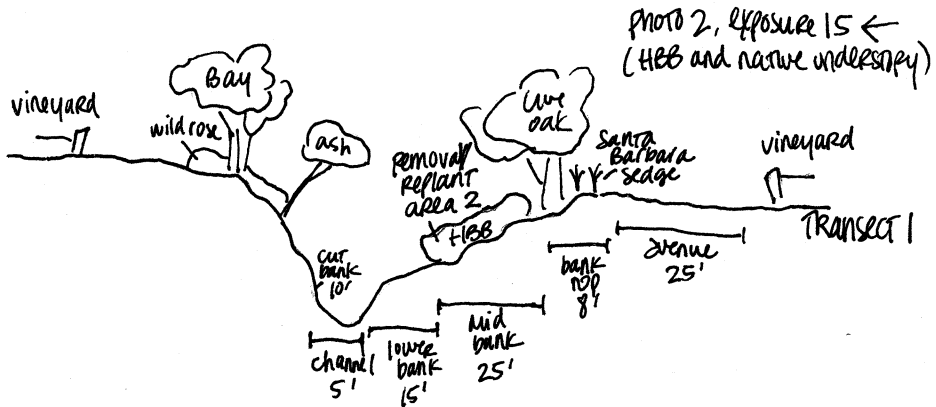 photo 2, exposure 15 ←
(HBB and native understory)
vineyard
Bay
wild rose
ash
Live
oak
Removal/
Replant
area 2
HBB
Santa
Barbara
sedge
vineyard
TRANSECT 1
cut
bank
10'
channel
5'
lower
bank
15'
mid
bank
25'
bank
top
8'
avenue
25'